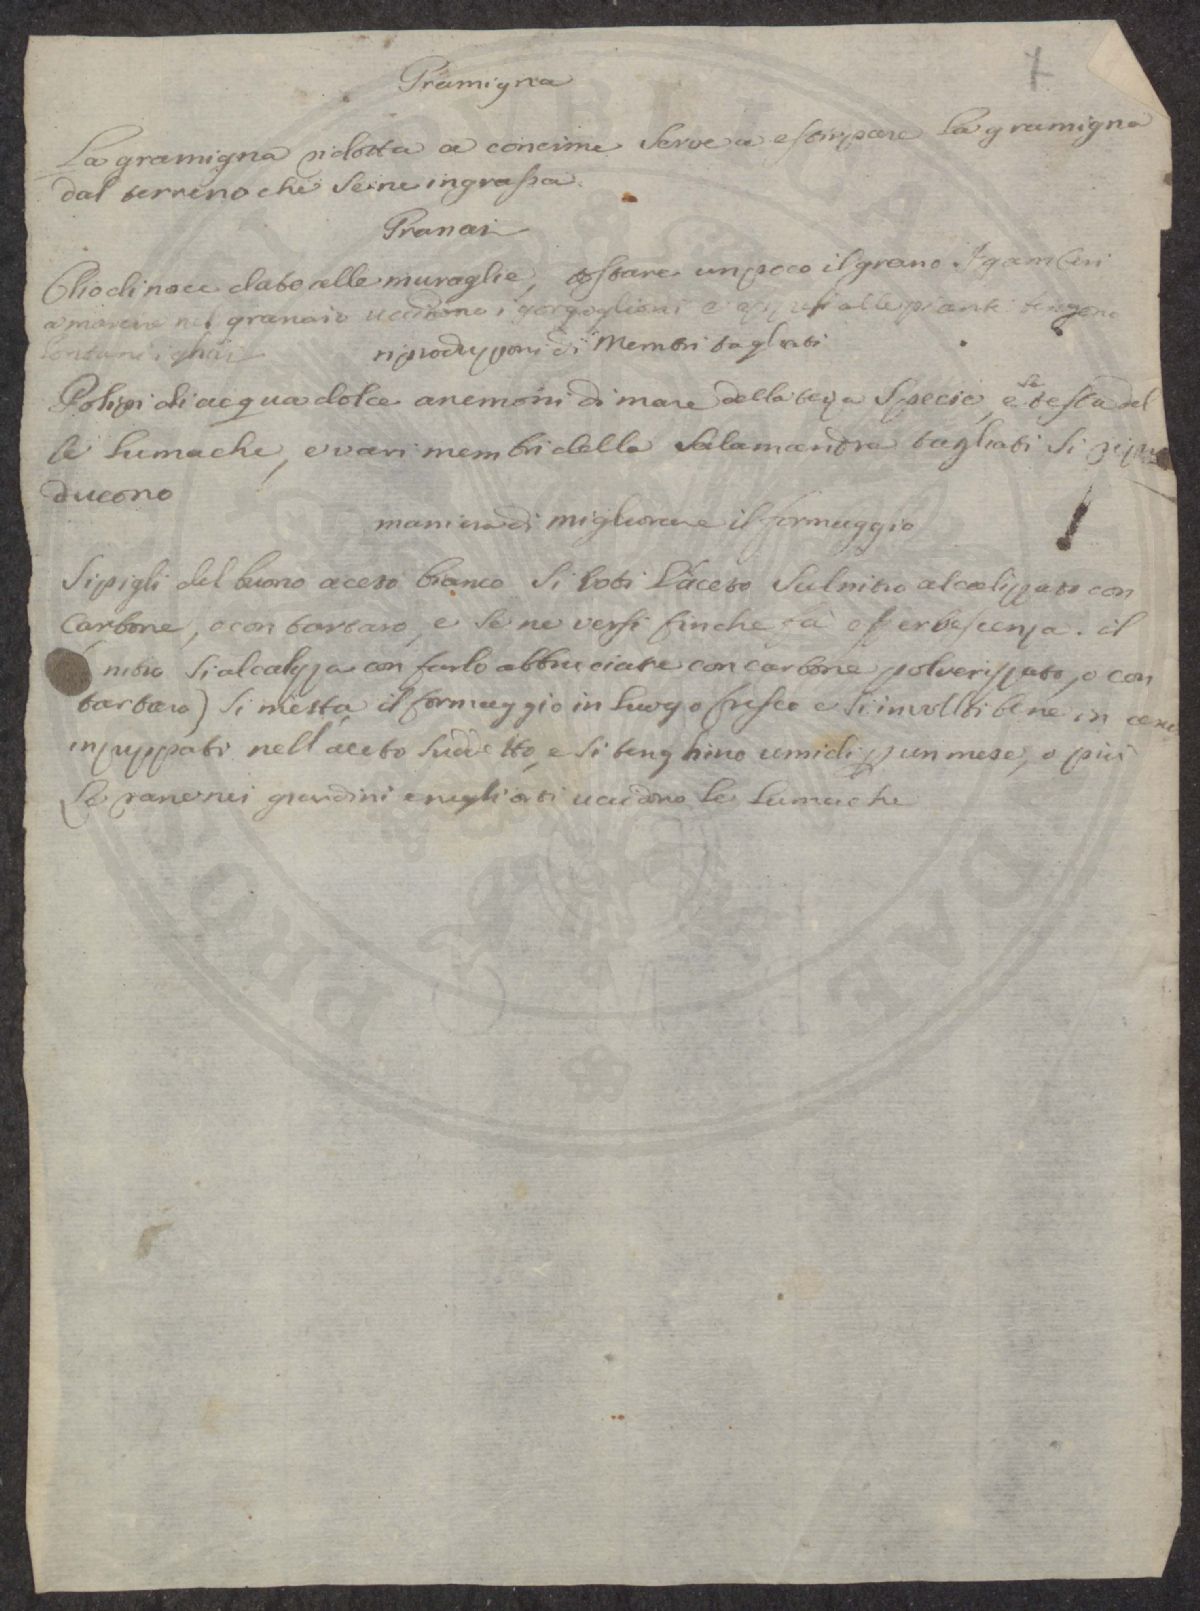 Gramigna
La gramigna ridotta a concime serve a estirpare la gramigna
dal terreno che se ne ingrassa.
Granai
Olio di noce dato alle muraglie, tostare un poco il grano. I gamberi
a marcire nel granaio uccidono i gorgoglioni e appesi alle piante tengono
lontani i ghiri
riproduzzioni di Membri tagliati
Polipi di acqua dolce anemoni di mare della terza specie, e la testa del
le lumache, e vari membri della Salamandra tagliati si ripro
ducono
maniera di migliorare il formaggio
Si pigli del buono aceto bianco si boti l'aceto sul nitro alcalizzato con
Carbone, o con tartaro, e se ne versi finche fà effervescenza. il
nitro si alcalizza con farlo abbruciare con carbone polverizzato, o con
tartaro) si metta il formaggio in luogo fresco e s'involti bene in cenci
inzuppati nell aceto suddetto, e si tenghino umidi p un mese, o più
Le rane nei giardini e negli orti uccidono le lumache